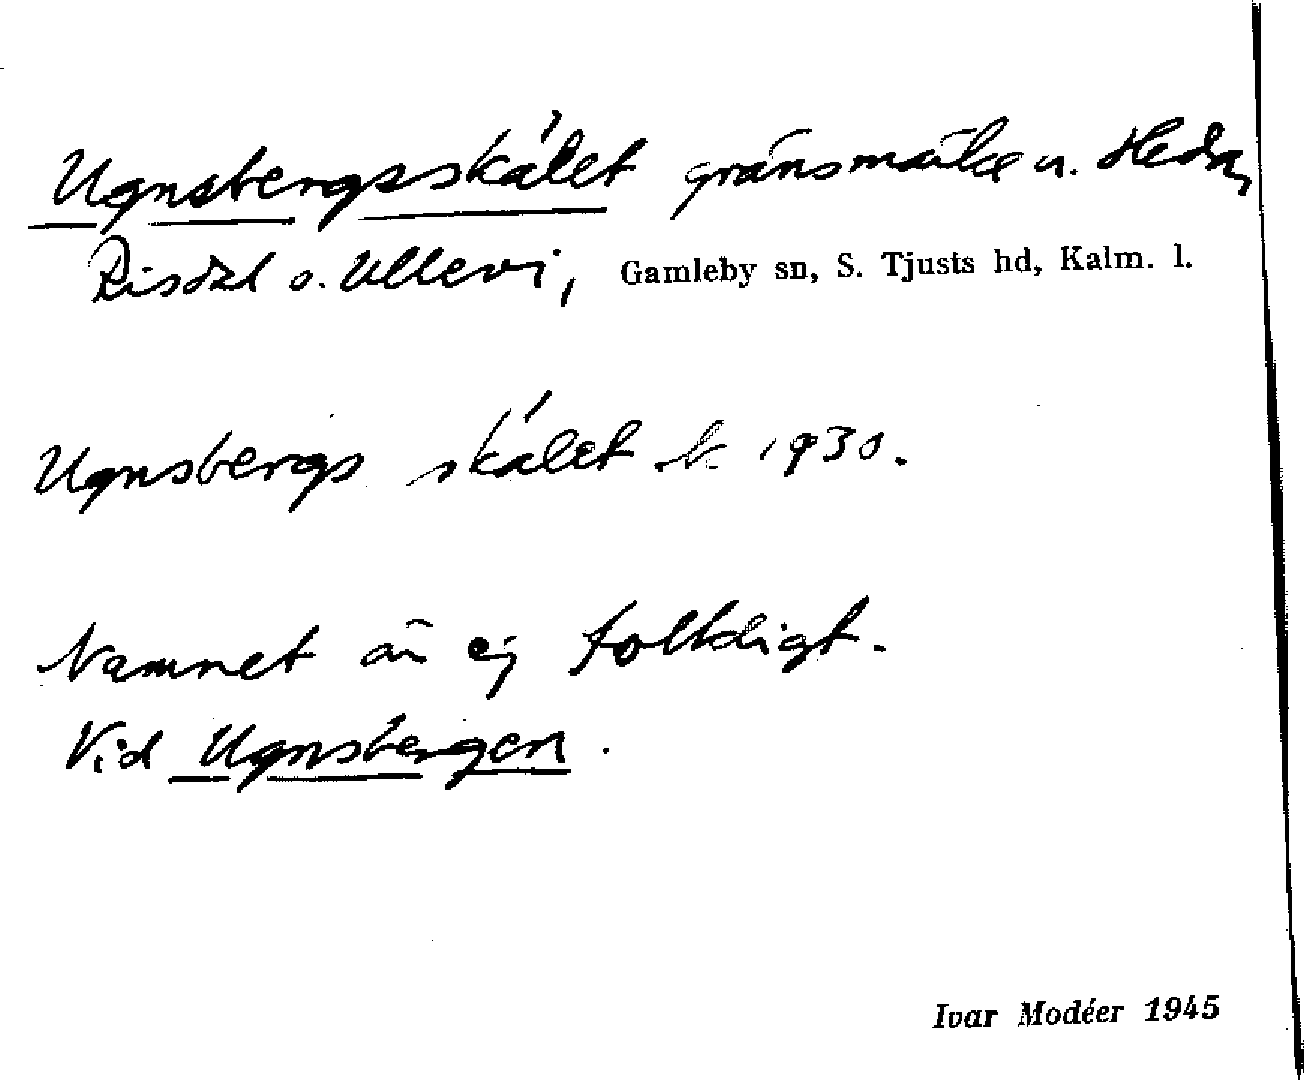 Ugnsbergsskálet gränsmärke u. Heda,
Risdal o. Ullevi, Gamleby sn, S. Tjusts hd, Kalm. l.
Ugnsbergs skálet k 1930.
Namnet är ej folkligt.
Vid Ugnsbergen.
Ivar Modéer 1945